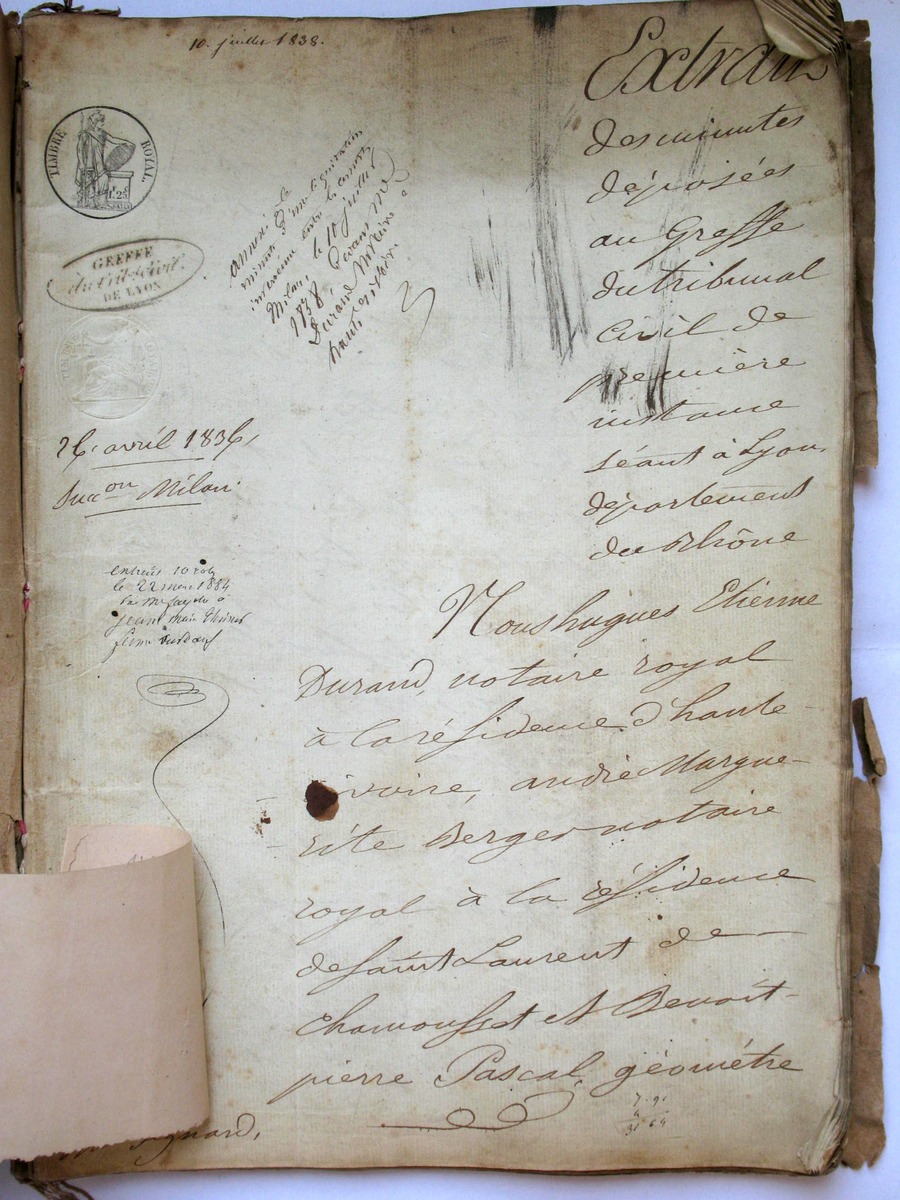 10. juillet 1838.
TIMBRE ROYAL.
1f. 25c
GREFFE
du trib. civil
DE LYON
annexé à la
minute d'une liquidation
intervenue entre les consorts
Milan, le 10 juillet
1838, Devant Me
Durand Notaire à
haute-rivoire
26, avril 1836,
Succon Milan.
extraits 10 rôles
le 22 mars 1884
à
jean marie
femme
Extrait
des minutes
déposées
au Greffe
du tribunal
Civil de
première
instance
séant à Lyon,
département
du Rhône
Nous hugues Etienne
Durand, notaire royal
à la résidence d'haute-
rivoire, andré Margue-
rite Berger notaire
royal à la résidence
de saint Laurent de
chamousset et Benoit-
pierre Pascal, géomètre
7. 91
4
31 64